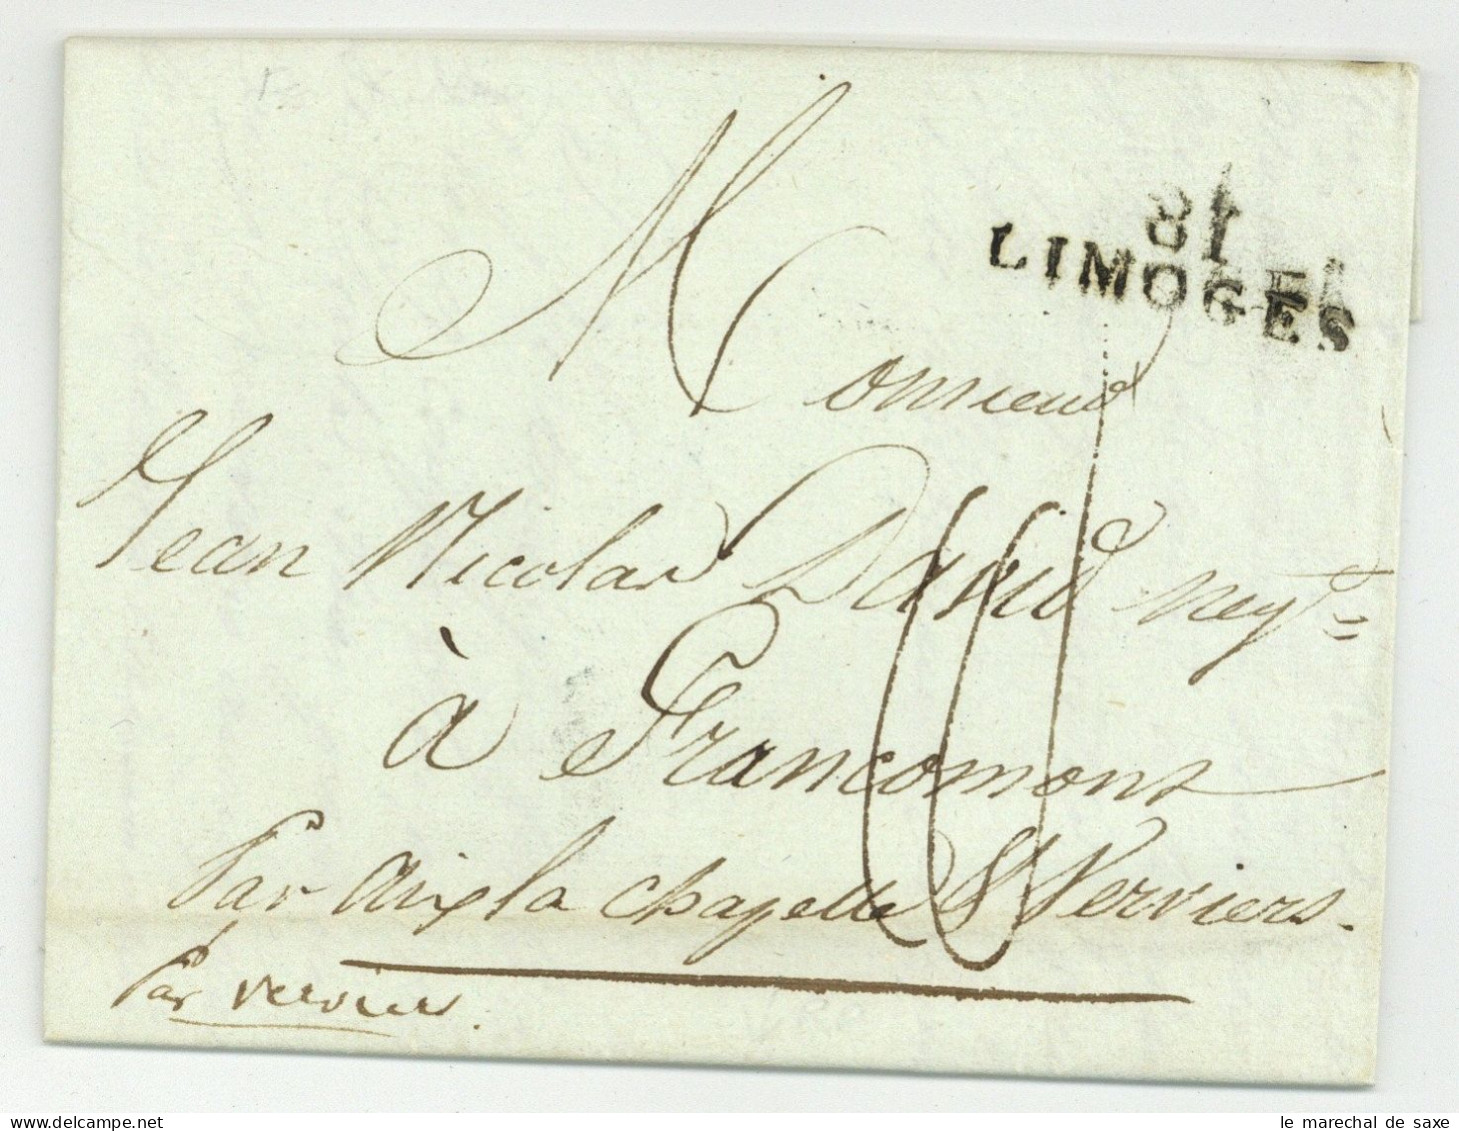 81
LIMOGES
Monsieur
Jean Nicolas David neg.te
à Francomont
Par aix la chapelle & Verviers.
Par verviers.
le marechal de saxe